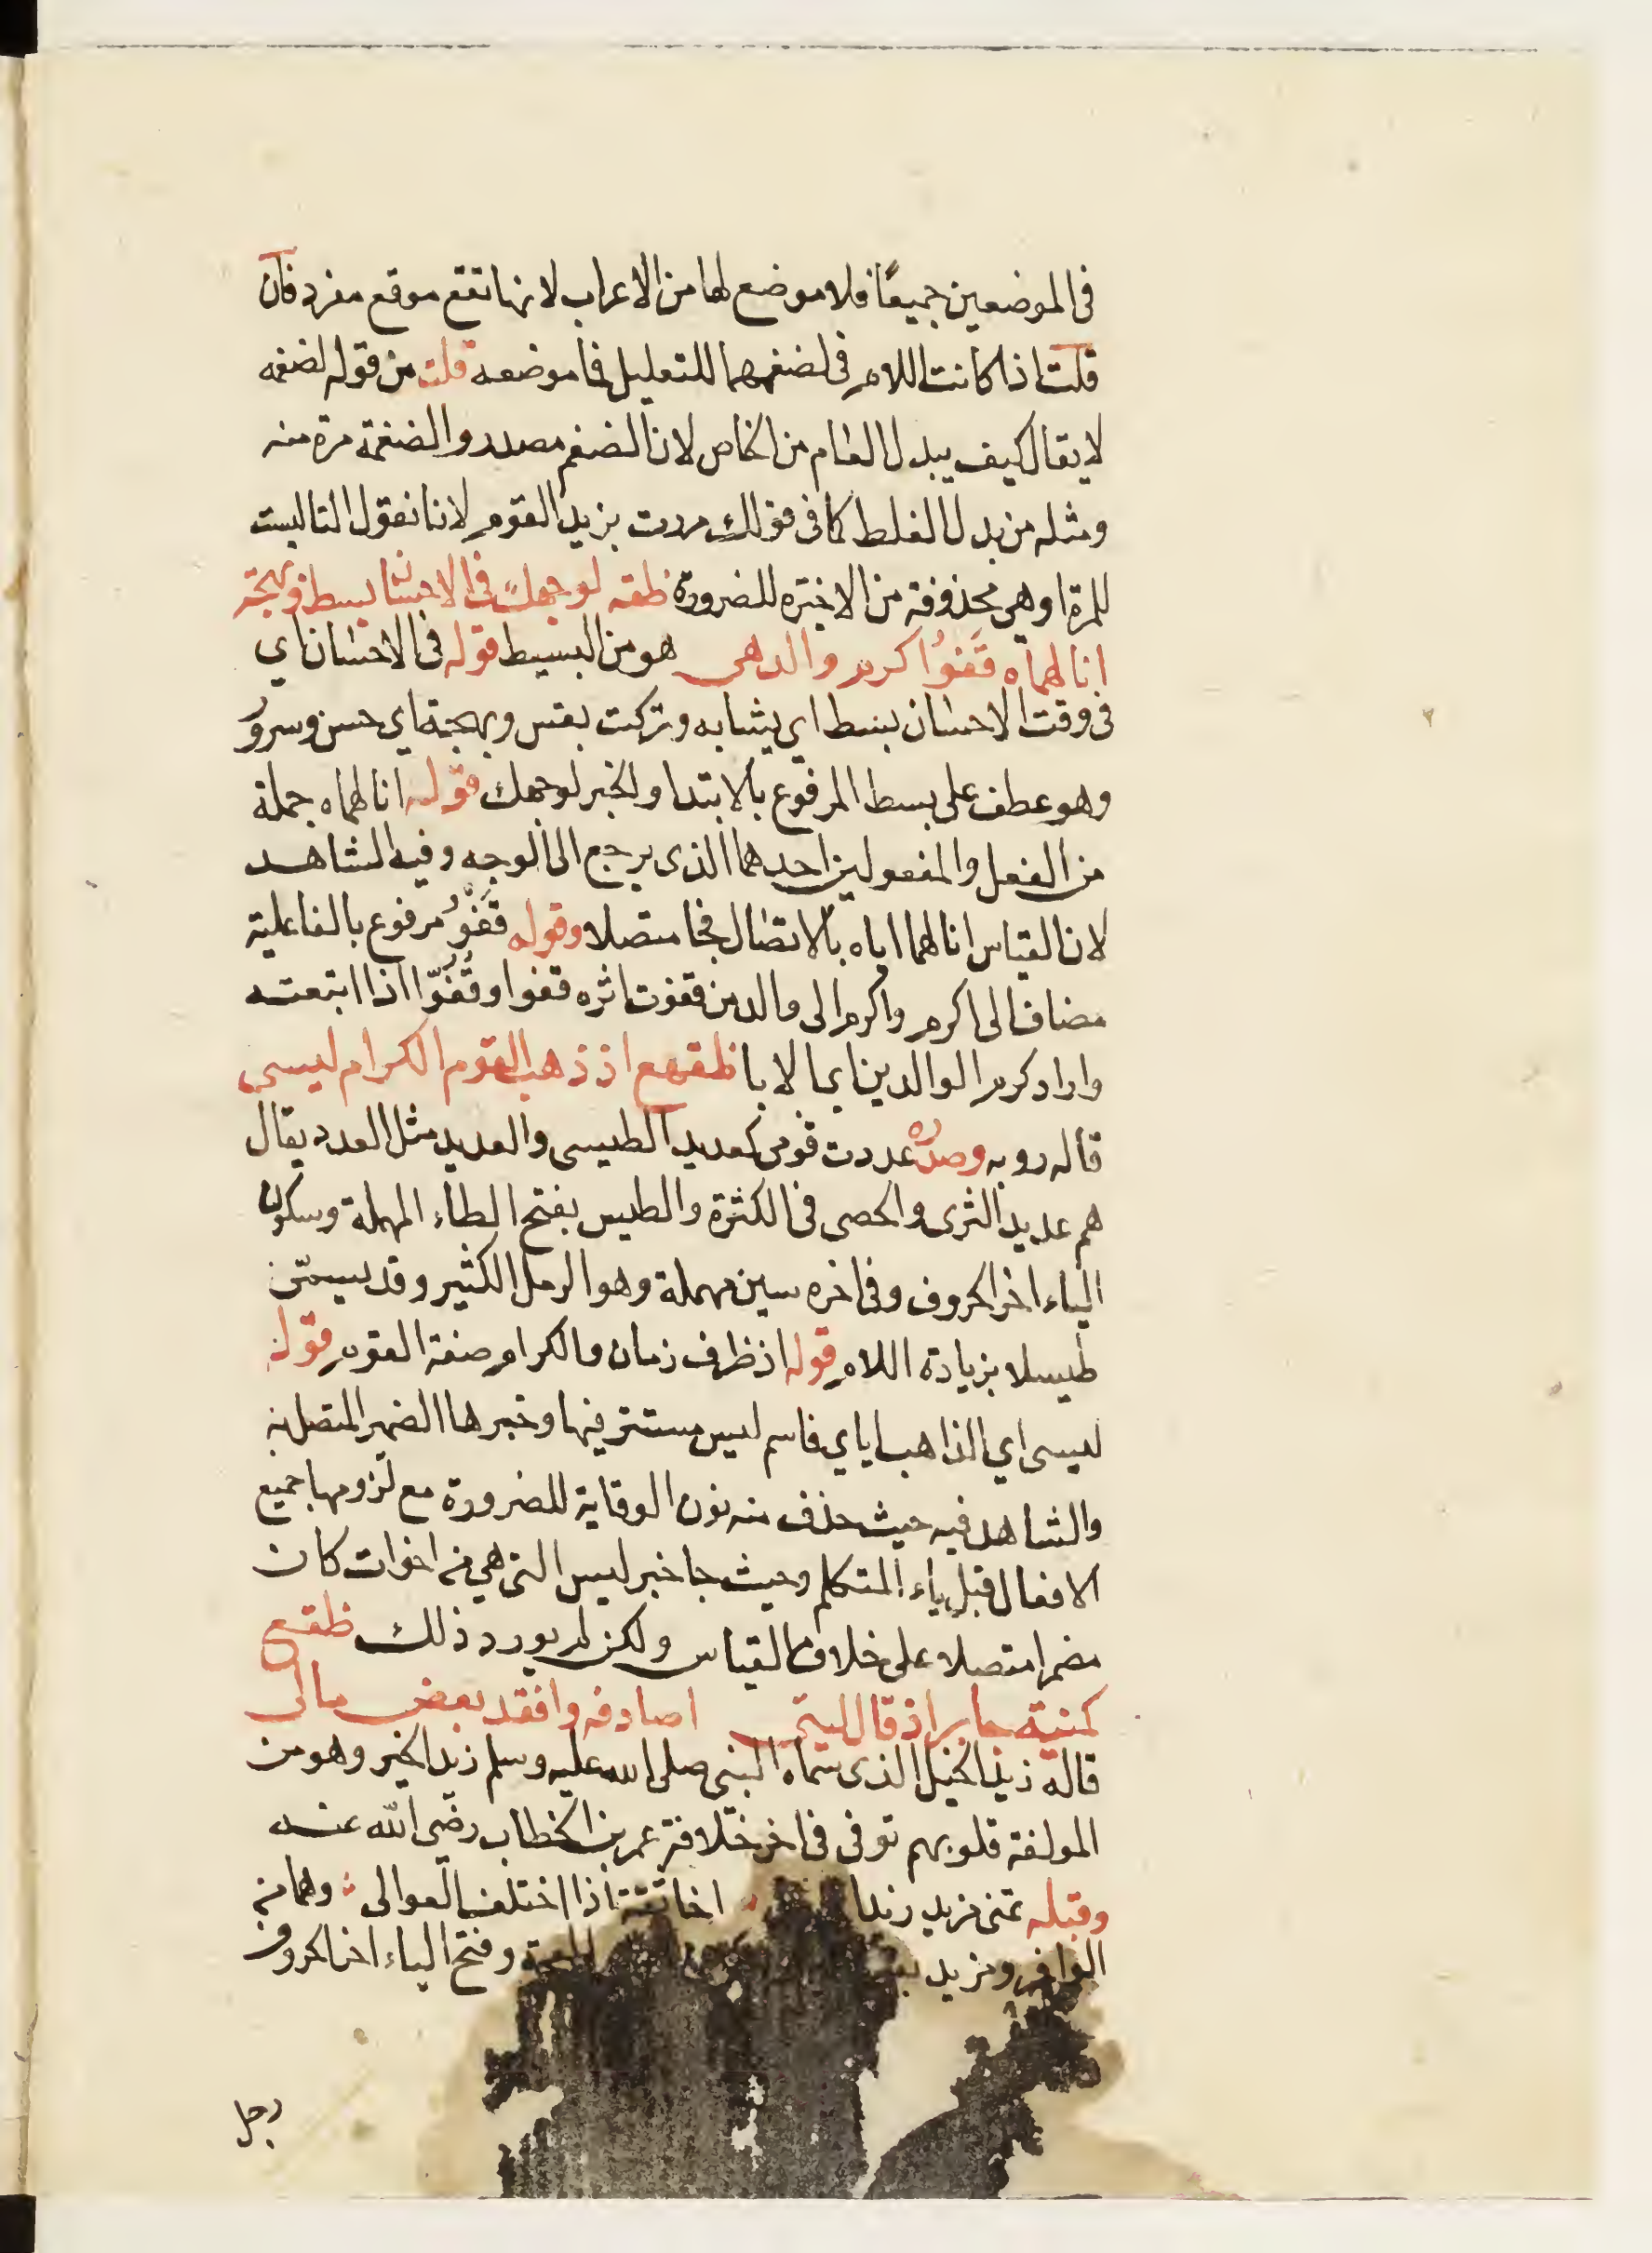 فى الموضعين جميعًا فلا موضع لها من الاعراب لانها تقع موقع مفرد فان
قلت اذا كانت اللام فى لضغمهما للتعليل فما موضعه قلت من قوله لضغمه
لا يقال كيف يبدل العام من الخاص لان الضغم مصدر والضغمة مرة منه
ومثله من بدل الغلط كما فى قولك مررت بزيد القوم لانا نقول التا ليست
للمرة او هى محذوفة من الاخيره للضرورة ظقه لوجهك فى الاحسان بسط وبهجة
انالهماه قَفوُ اكرم والدهى هو من البسيط قوله فى الاحسان اي
فى وقت الاحسان بسط اي بشابه وتركت بعبس وبهجة اي حسن وسرور
وهو عطف على بسط المرفوع بالابتدا والخبر لوجهك قوله انالهماه جملة
من الفعل والمفعولين احدهما الذى يرجع الى الوجه وفيه الشاهد
لان القياس انالهما اياه بالاتصال فجا متصلا وقوله قَفْوُ مرفوع بالفاعلية
مضاف الى اكرم واكرم الى والد من قفوت اثره قفوا وقُفُوّا اذا اتبعته
واراد كريم الوالدين اى الابا ظقهع اذ ذهب القوم الكرام ليسى
قاله روبه وصدره عددت قومى كعديد الطيسى والعديد مثل العدد يقال
هم عديد الثرى والحصى فى الكثرة والطيس بفتح الطاء المهملة وسكون
الياء اخر الحروف وفى اخره سين مهملة وهو الرمل الكثير وقد يسمى
طيسلا بزيادة اللام قوله اذ ظرف زمان والكرام صفة القوم قوله
ليسى اي الذاهب اياي فاسم ليس مستتر فيها وخبرها الضمير المتصل به
والشاهد فيه حيث حذف منه نون الوقاية للضرورة مع لزومها جميع
الافعال قبل ياء المتكلم وحيث جا خبر ليس التى هى من اخوات كان
مضمرا متصلا على خلاف القياس ولكن لم يورد ذلك ظقع
كمنية جابر اذ قال ليتى اصادفه وافقد بعض مالى
قاله زيد الخيل الذى سماه النبى صلى الله عليه وسلم زيد الخير وهو من
المولفة قلوبهم توفى فى اخر خلافة عمر بن الخطاب رضى الله عنه
وقبله تمنى مزيد زيدا اخا ثقة اذا اختلف العوالى وهما من
الوافر ومزيد المعجمة وفتح الياء اخر الحروف
رجل